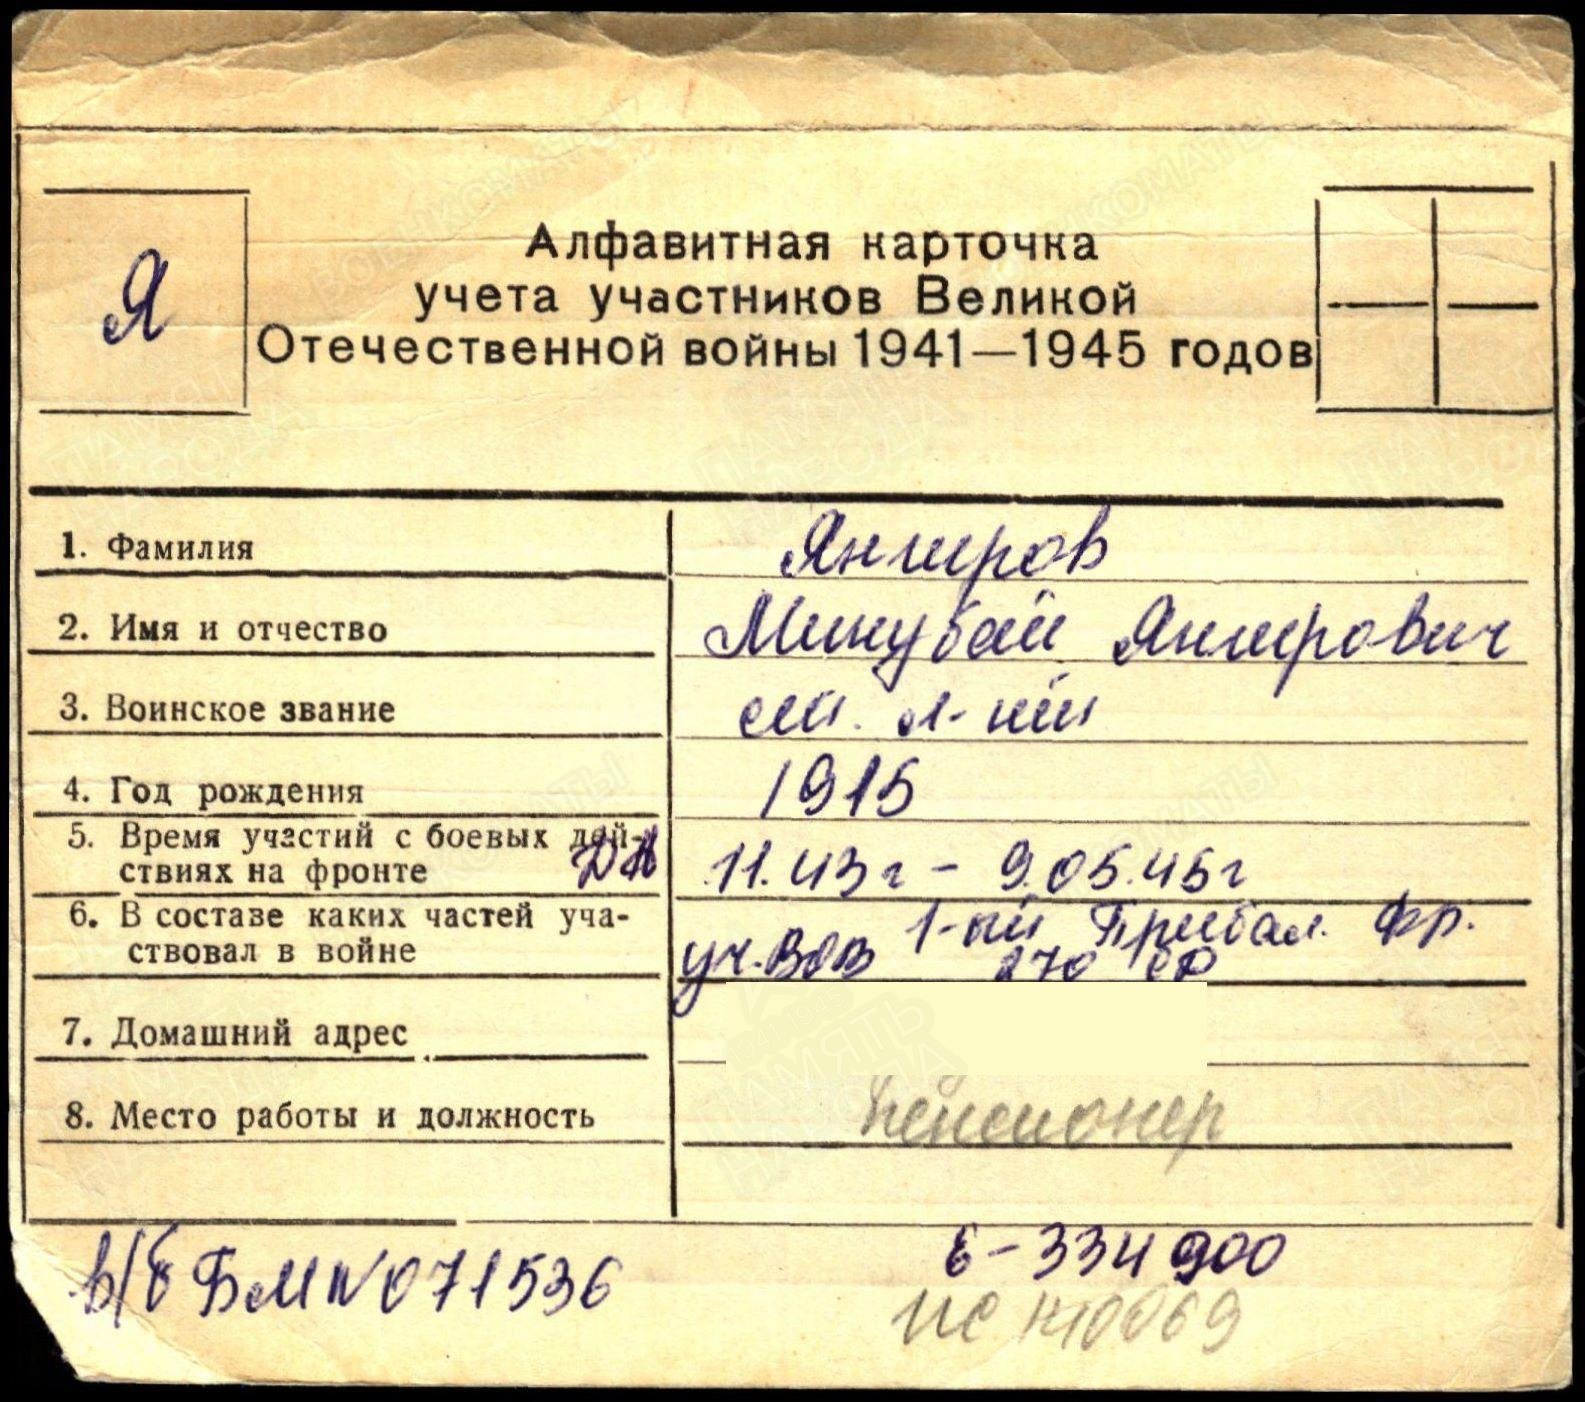 Я
Алфавитная карточка
учета участников Великой
Отечественной войны 1941—1945 годов
1. Фамилия Янгиров
2. Имя и отчество Минубай Янгирович
3. Воинское звание мл. л-нт
4. Год рождения 1915
5. Время участий с боевых дей-
ствиях на фронте 11.43г - 9.05.45г
6. В составе каких частей уча-
ствовал в войне уч. ВОВ 1-ый Прибал. фр.
270 сд
7. Домашний адрес
8. Место работы и должность Пенсионер
в/б БМ N 071536
Е-334900